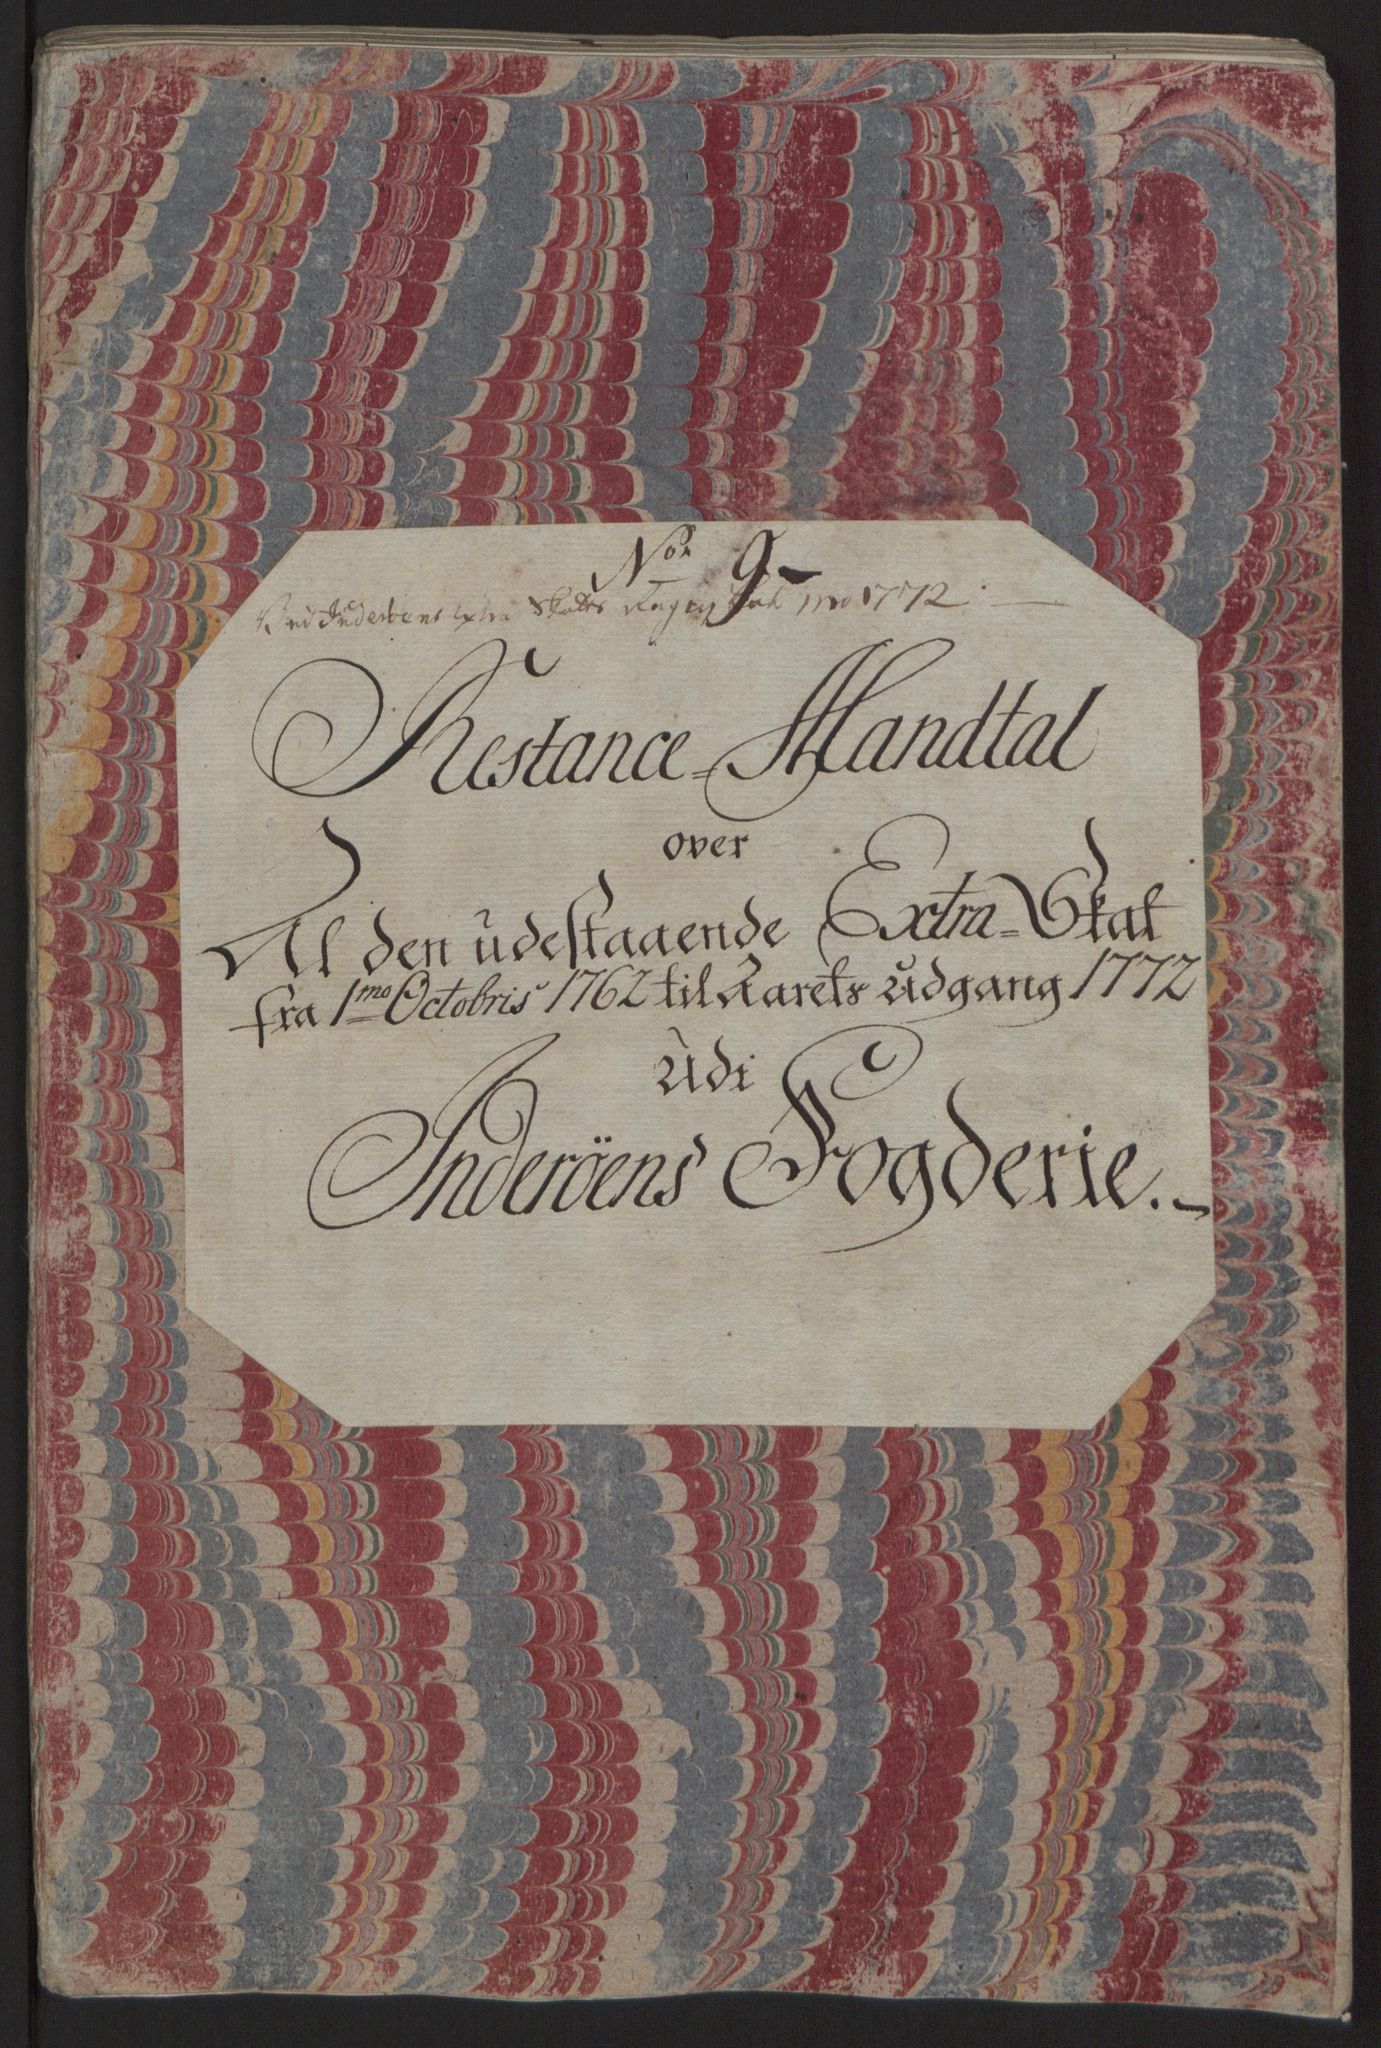 No. 9
Ved Inderöens Extra Skatts 1772
Restance-Mandtal
over
Al den udestaaende Extra-Skat
fra 1mo Octobris 1762 til Aarets Udgang 1772
Udi
Inderöens Fogderie.